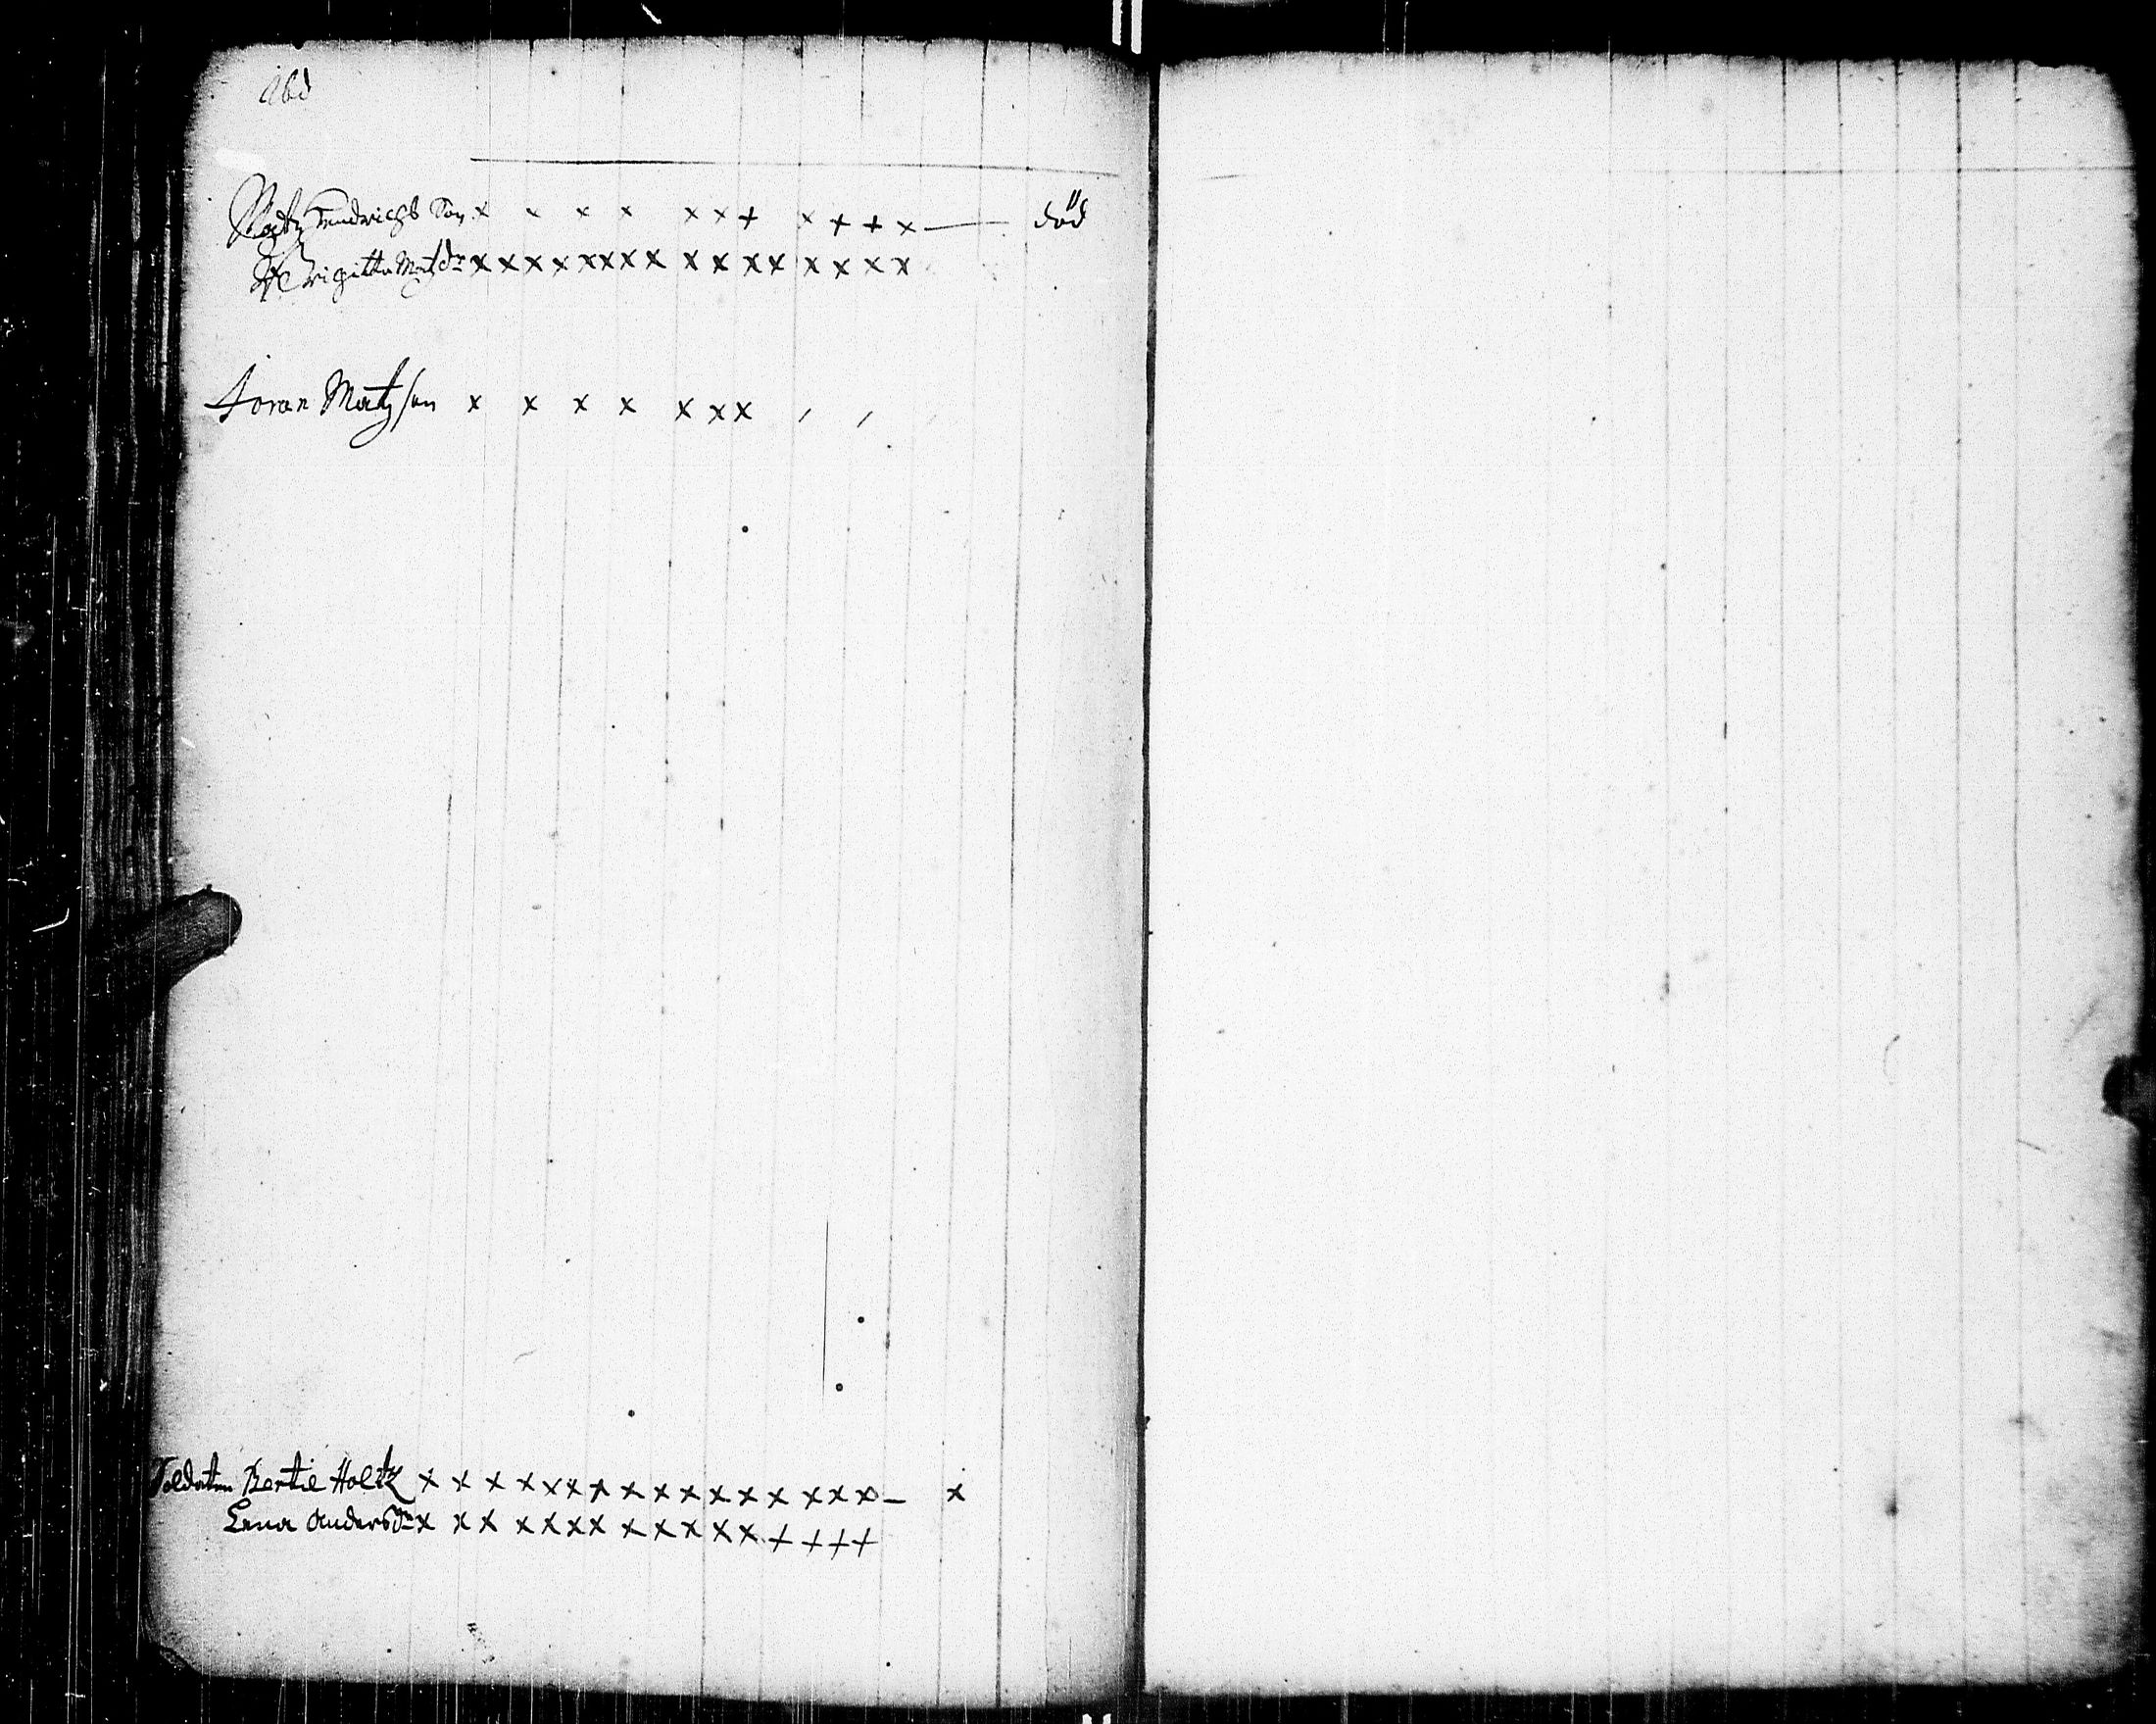 Matz Hendrichs Son x x x x x x + x + + x — död
H Brigitta Matzdr x x x x x x x x x x x x x x x x
Joran Matzson x x x x x x x , ,
Soldaten Bertil Holtz x x x x x x x x x x x x x x x x x — x
Lena Andersdr x x x x x x x x x x x x + + + +